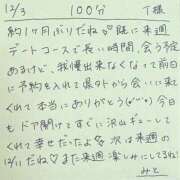 12/3 100分 T様
約1ヶ月ぶりだね♡既に来週
デートコースで長い時間、会う予定
あるけど、我慢出来なくなって前日
に予約を入れて県外から会いに来て
くれて本当にありがとう(*´`*)今日
もドア開けてすぐに沢山ギューして
くれて幸せだったよ 次は来週の
12/11だね♡また来週楽しみにしてるね!
みと